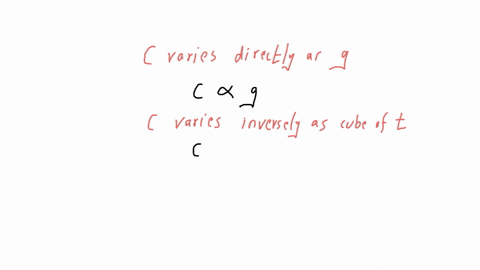 C varies directly as g
C ∝ g
C varies inversely as cube of t
C